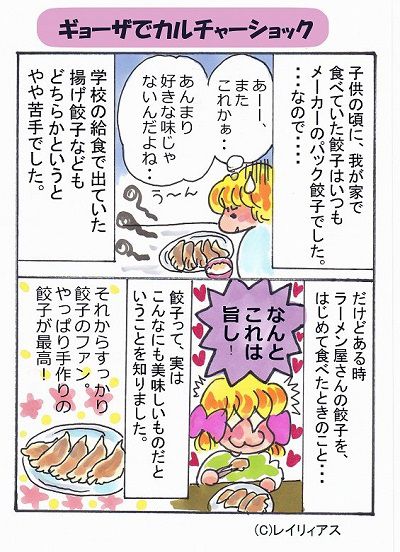 ギョーザでカルチャーショック
子供の頃に、我が家で
食べていた餃子はいつも
メーカーのパック餃子でした。
・・・なので・・・・
あーー、
また
これかぁ・・
あんまり
好きな味じゃ
ないんだよね・・
う〜ん
学校の給食で出ていた
揚げ餃子なども
どちらかというと
やや苦手でした。
だけどある時
ラーメン屋さんの餃子を、
はじめて食べたときのこと・・・
なんと
これは
旨し!
餃子って、実は
こんなにも美味しいものだと
いうことを知りました。
それからすっかり
餃子のファン。
やっぱり手作りの
餃子が最高!
(C)レイリィアス